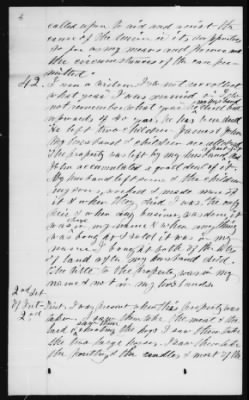 called upon to aid and assist the
cause of the Union & its supporters
so far as my means and power and
the circumstances of the case per-
mitted.
42. I am a widow I do not recollect
what year I was married in. I do
not remember what year he died but
upwards of 20 year he has been dead
He left two children James & John
my husband & children are all dead
The property was left by my husband and
I then accumulated a good deal of it.
My husband left some & the children
my sons worked & made some of
it & when they died I was the only
heir & when any business was done it
was in my name & when any thing
was bought & sold it was in my
name. I bought both of the lots
of land after my husband died.
The title to the property, was in my
name & not in my husbands
2nd Set
of Inter
2nd
first. I was present when this property was
taken. I saw them take the meat & the
lard & the hogs I saw them take
the two large horses. I saw them take
the poultry & the candles & most of the